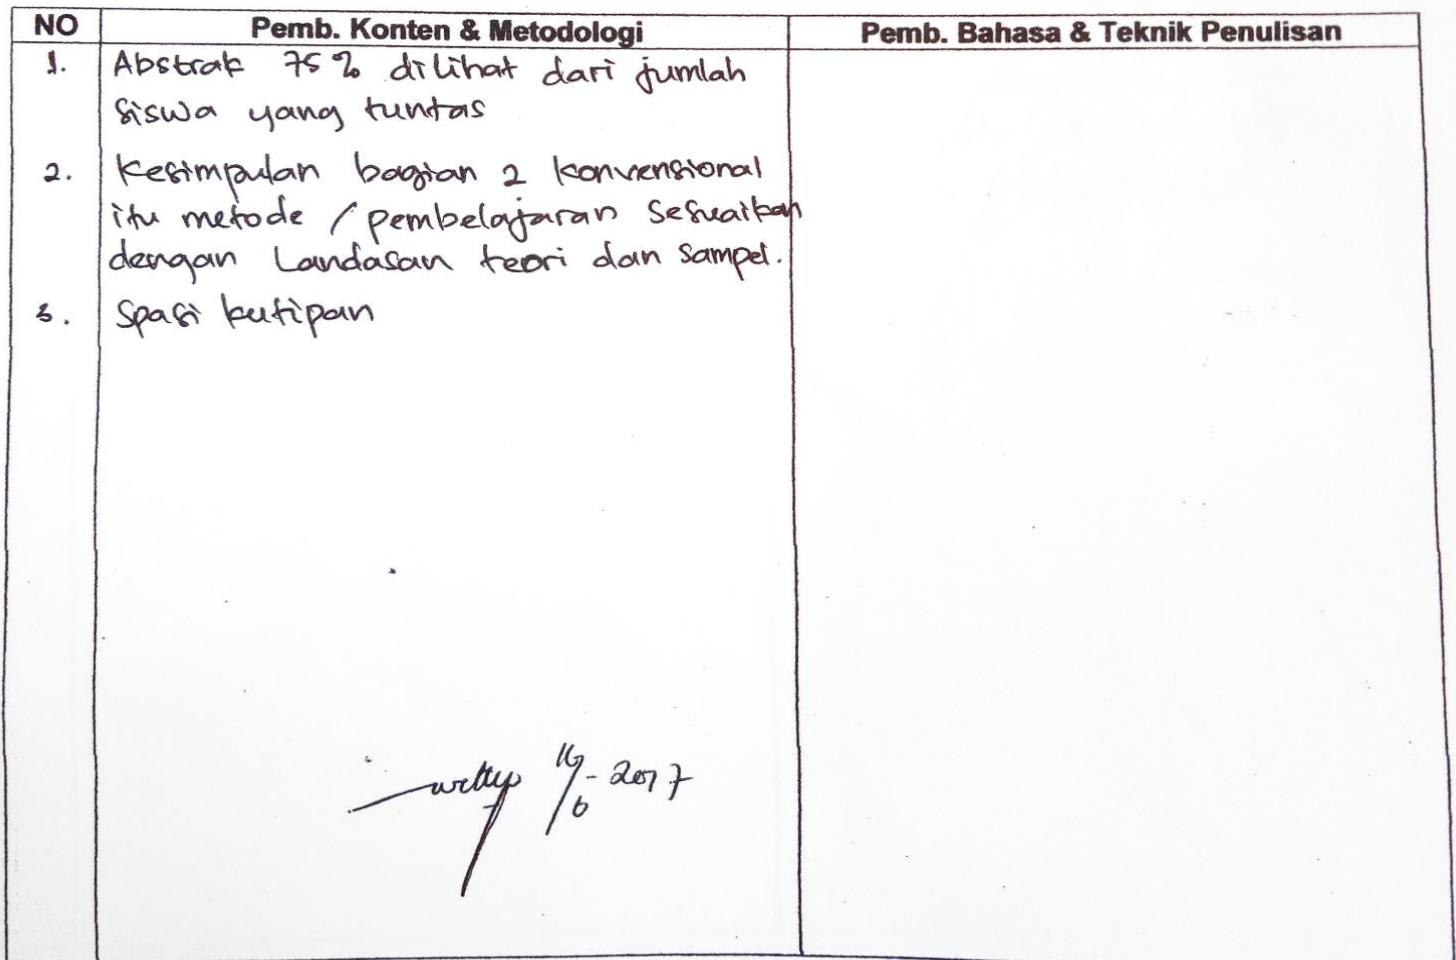 NO Pemb. Konten & Metodologi Pemb. Bahasa & Teknik Penulisan
1. Abstrak 75 % dilihat dari jumlah
siswa yang tuntas
2. Kesimpulan bagian 2 konvensional
itu metode / pembelajaran sesuaikan
dengan Landasan teori dan sampel.
3. Spasi kutipan
/6 - 2017